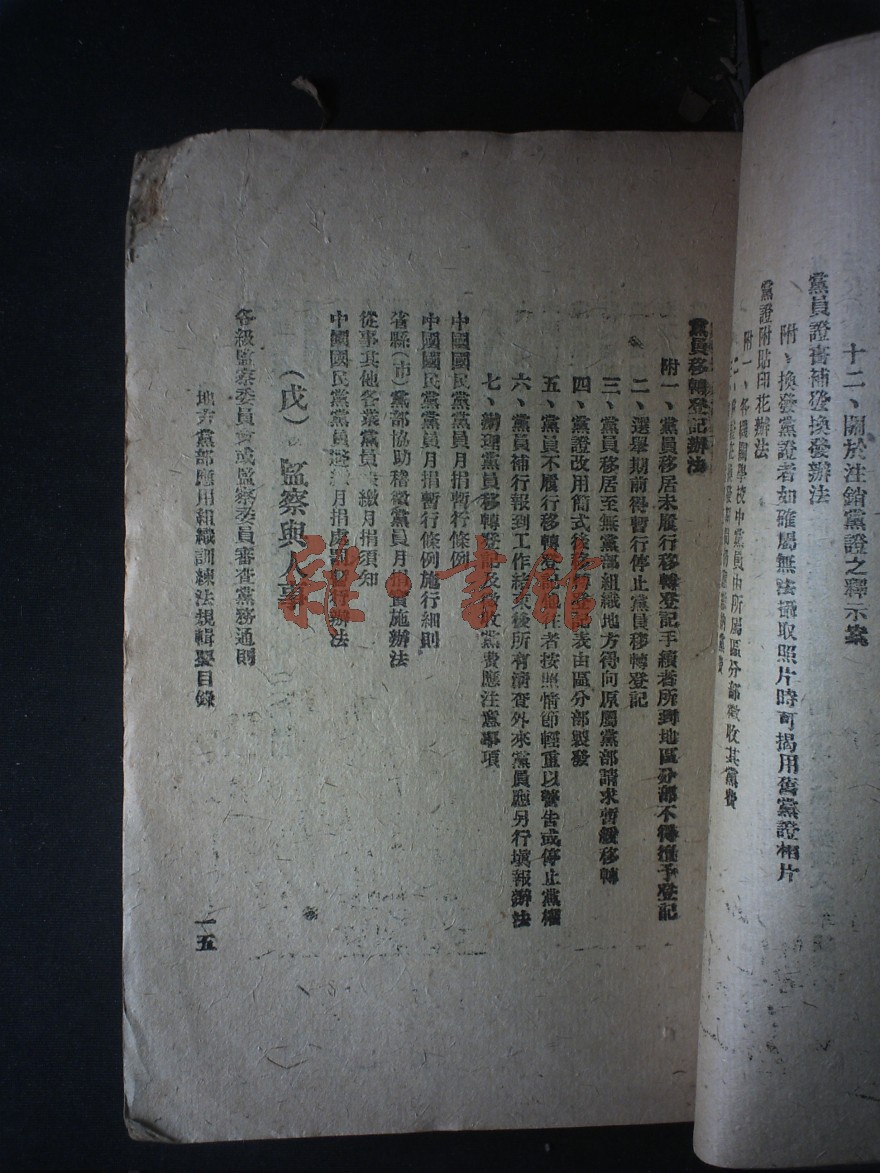 十二、關於注銷黨證之釋示案
黨員證書補發換發辦法
附、換發黨證者如確屬無法攝取照片時可揭用舊黨證相片
黨證附貼印花辦法
附一、各機關學校中黨員由所屬區分部徵收其黨費
二、
黨員移轉登記辦法
附一、黨員移居未履行移轉登記手續者所到地區分部不得准予登記
二、選舉期前得暫行停止黨員移轉登記
三、黨員移居至無黨部組織地方得向原屬黨部請求暫緩移轉
四、黨證改用簡式後移轉登記表由區分部製發
五、黨員不履行移轉登記者按照情節輕重以警告或停止黨權
六、黨員補行報到工作結束後所有清查外來黨員應另行填報辦法
七、辦理黨員移轉登記及徵收黨費應注意事項
中國國民黨黨員月捐暫行條例
中國國民黨黨員月捐暫行條例施行細則
省縣(市)黨部協助稽徵黨員月捐實施辦法
從事其他各業黨員繳月捐須知
中國國民黨黨員月捐處辦法
(戌)監察與人事
各級監察委員會或監察委員審查黨務通則
地方黨部應用組織訓練法規輯要目錄
一五
雜·書館